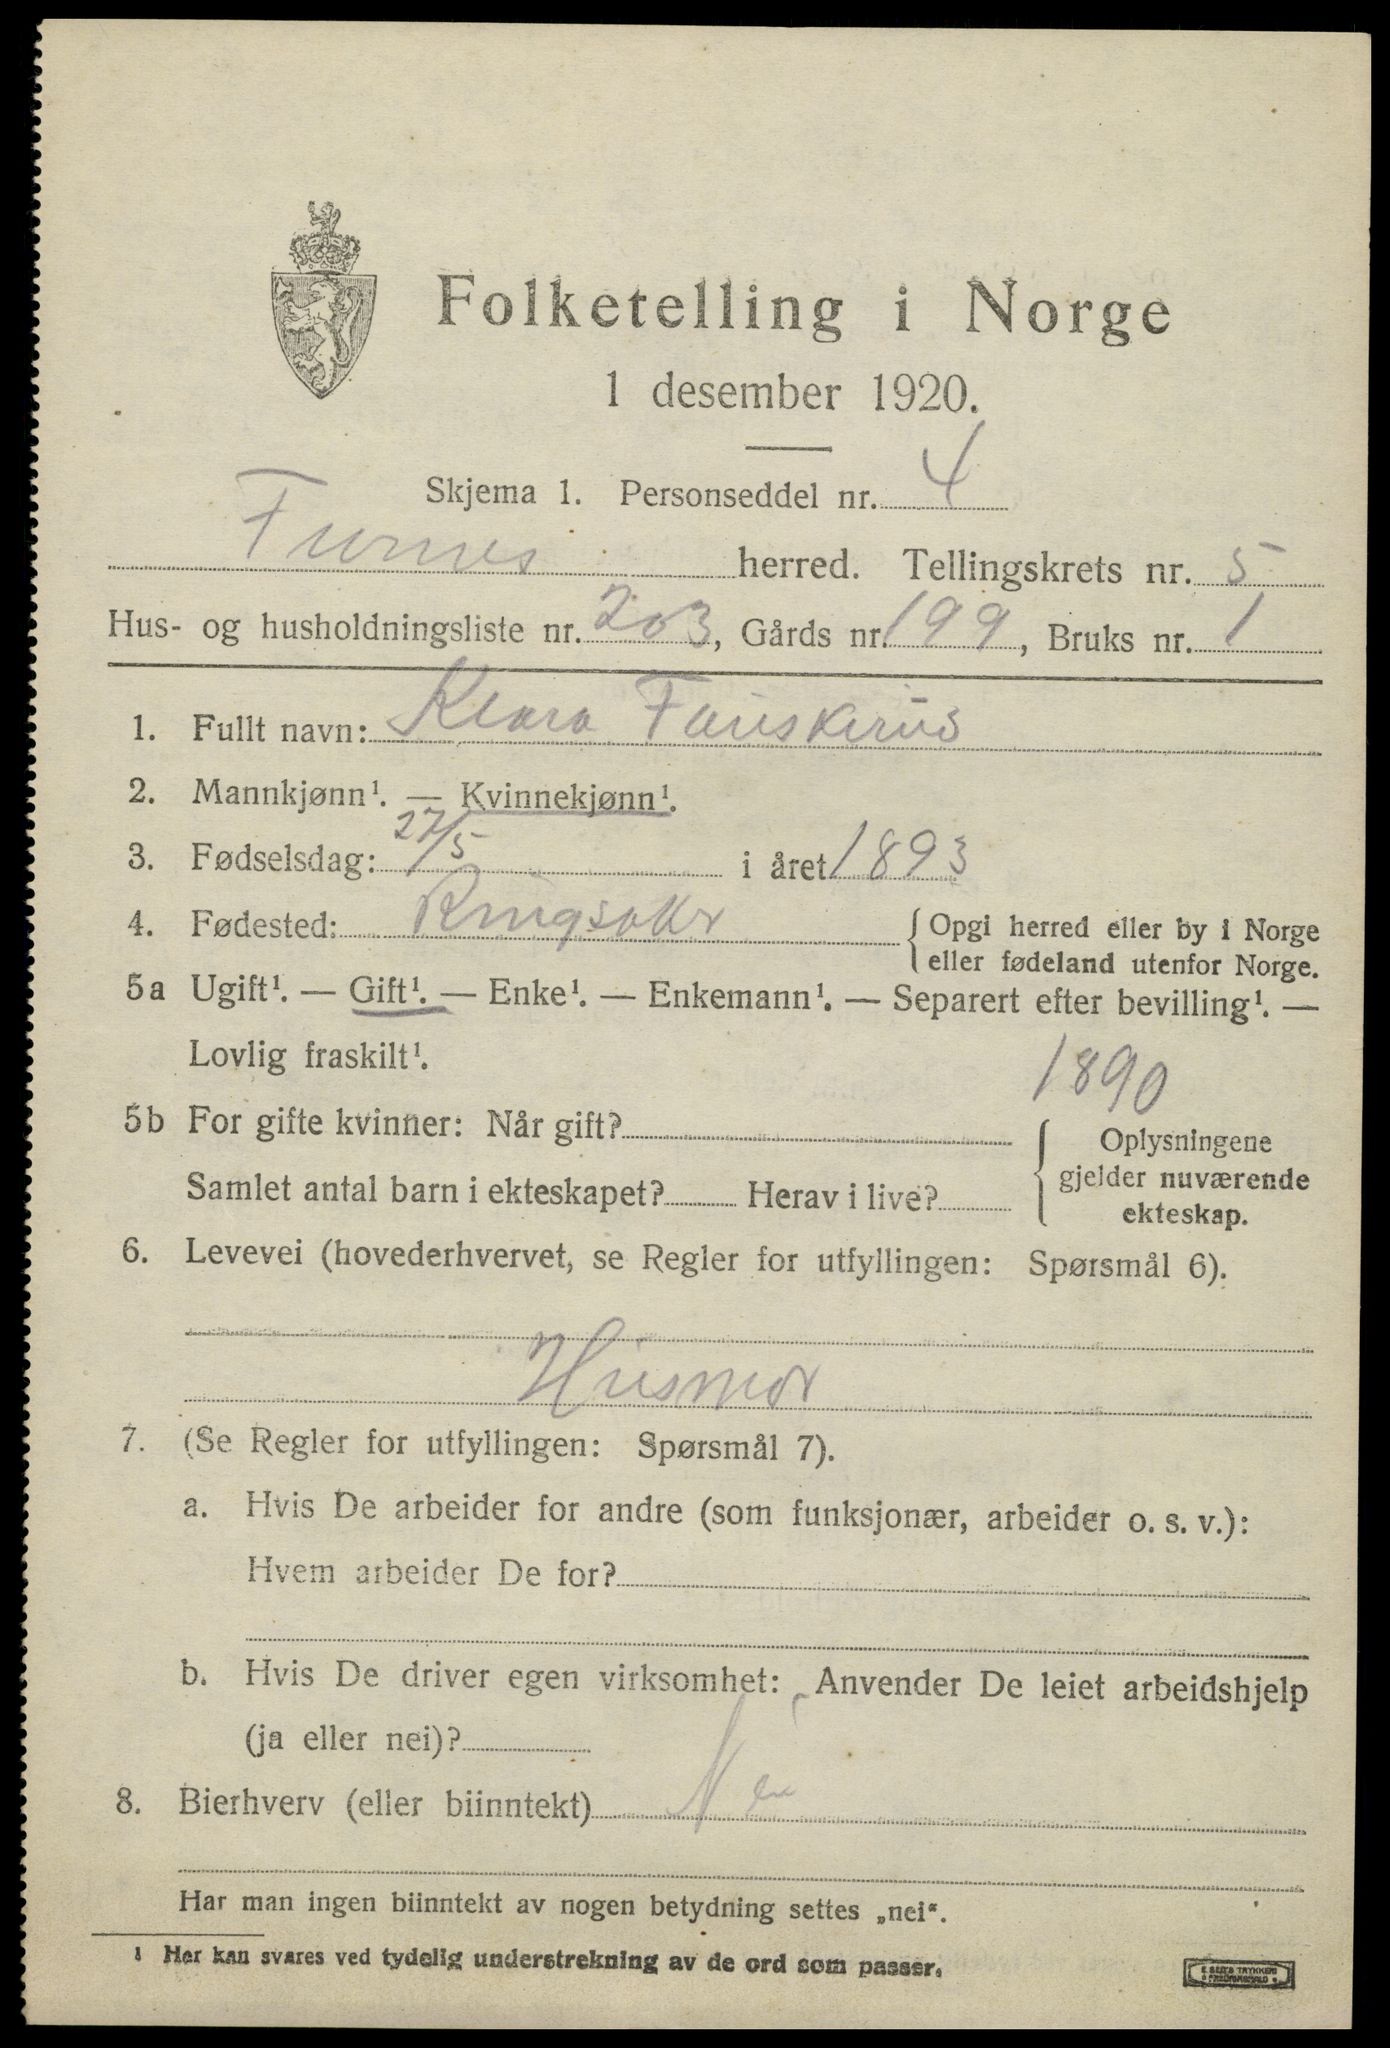 Folketelling i Norge
1 desember 1920.
Skjema 1. Personseddel nr. 4
Furnes herred. Tellingskrets nr. 5
Hus- og husholdningsliste nr. 203, Gårds nr. 199, Bruks nr. 1
1. Fullt navn: Klara
2. Mannkjønn¹. — Kvinnekjønn¹.
3. Fødselsdag: 27/5 i året 1893
4. Fødested: Ringsaker {Opgi herred eller by i Norge
eller fødeland utenfor Norge.
5a Ugift¹. — Gift¹. — Enke¹. — Enkemann¹. — Separert efter bevilling¹. —
Lovlig fraskilt¹.
1890
5b For gifte kvinner: Når gift?
Samlet antal barn i ekteskapet? Herav i live?
{Oplysningene
gjelder nuværende
ekteskap.
6. Levevei (hovederhvervet, se Regler for utfyllingen: Spørsmål 6).
Husmor
7. (Se Regler for utfyllingen: Spørsmål 7).
a. Hvis De arbeider for andre (som funksjonær, arbeider o. s. v.):
Hvem arbeider De for?
b. Hvis De driver egen virksomhet: Anvender De leiet arbeidshjelp
(ja eller nei)?
8. Bierhverv (eller biinntekt) Nei
Har man ingen biinntekt av nogen betydning settes „nei“.
¹ Her kan svares ved tydelig understrekning av de ord som passer.